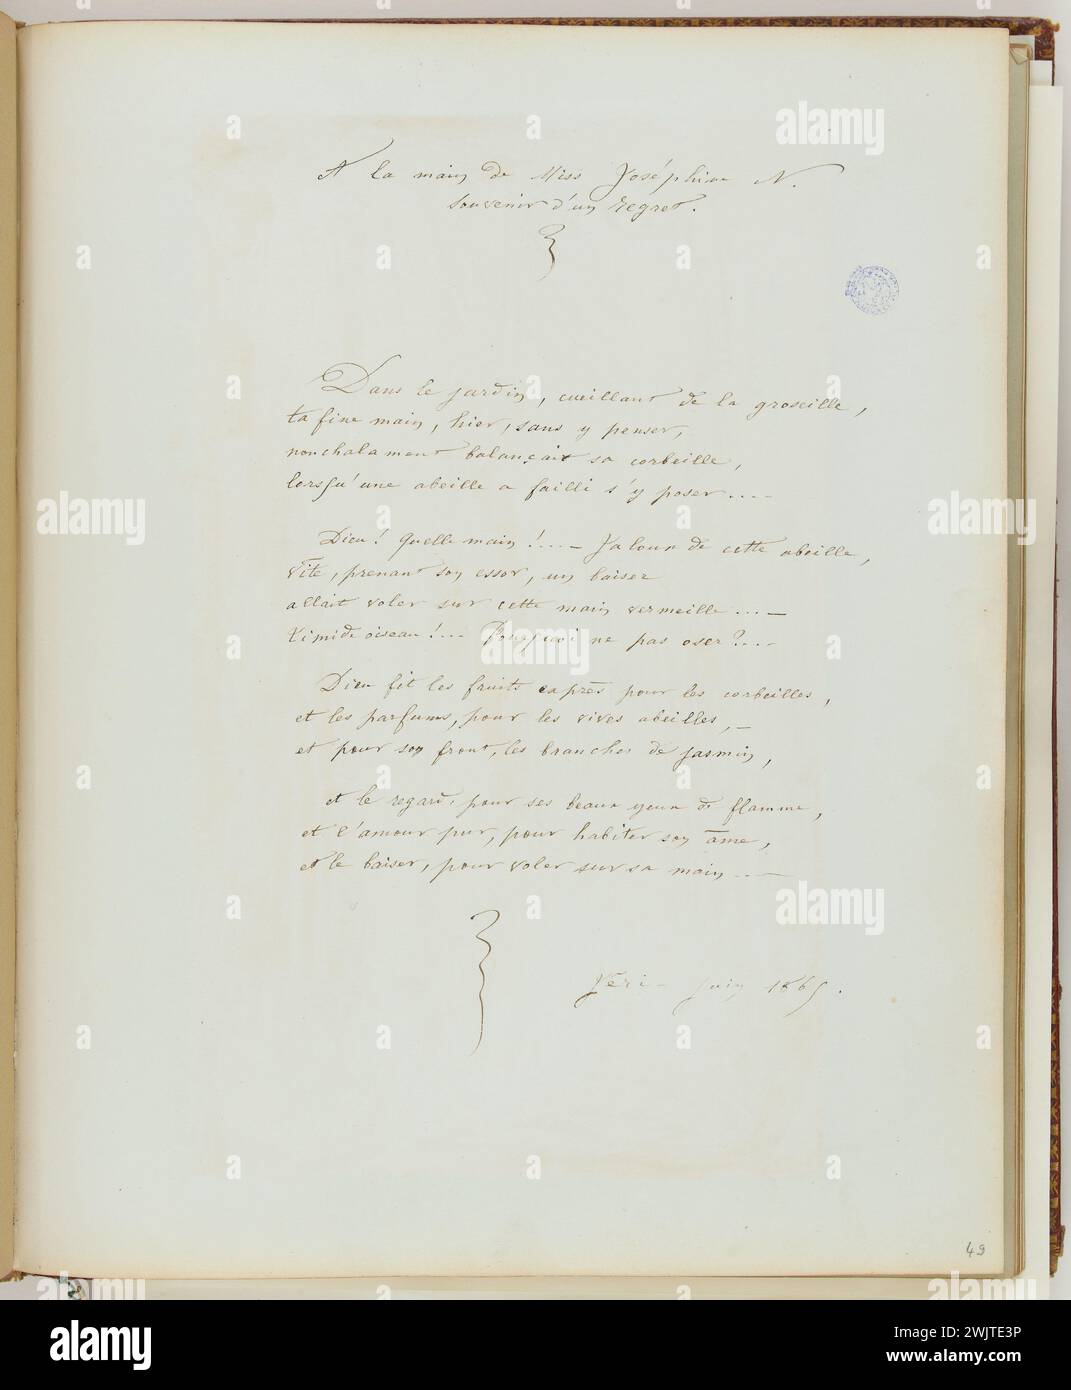 A la main de Miss Joséphine N.
souvenir d'un regret.
Dans le jardin, cueillant de la groseille,
ta fine main, hier, sans y penser,
nonchalament balançait sa corbeille,
lorsqu'une abeille a failli s'y poser....
Dieu! quelle main!... Jaloux de cette abeille,
vite, prenant son essor, un baiser
allait voler sur cette main vermeille...
timide oiseau!... Pourquoi ne pas oser?...
Dieu fit les fruits exprès pour les corbeilles,
et les parfums, pour les vives abeilles,
et pour son front, les branches de jasmin,
et le regard, pour ses beaux yeux de flamme,
et l'amour pur, pour habiter son âme,
et le baiser, pour voler sur sa main...
Juin 1865.
49
alamy
Image ID: 2WJTE3P
www.alamy.com